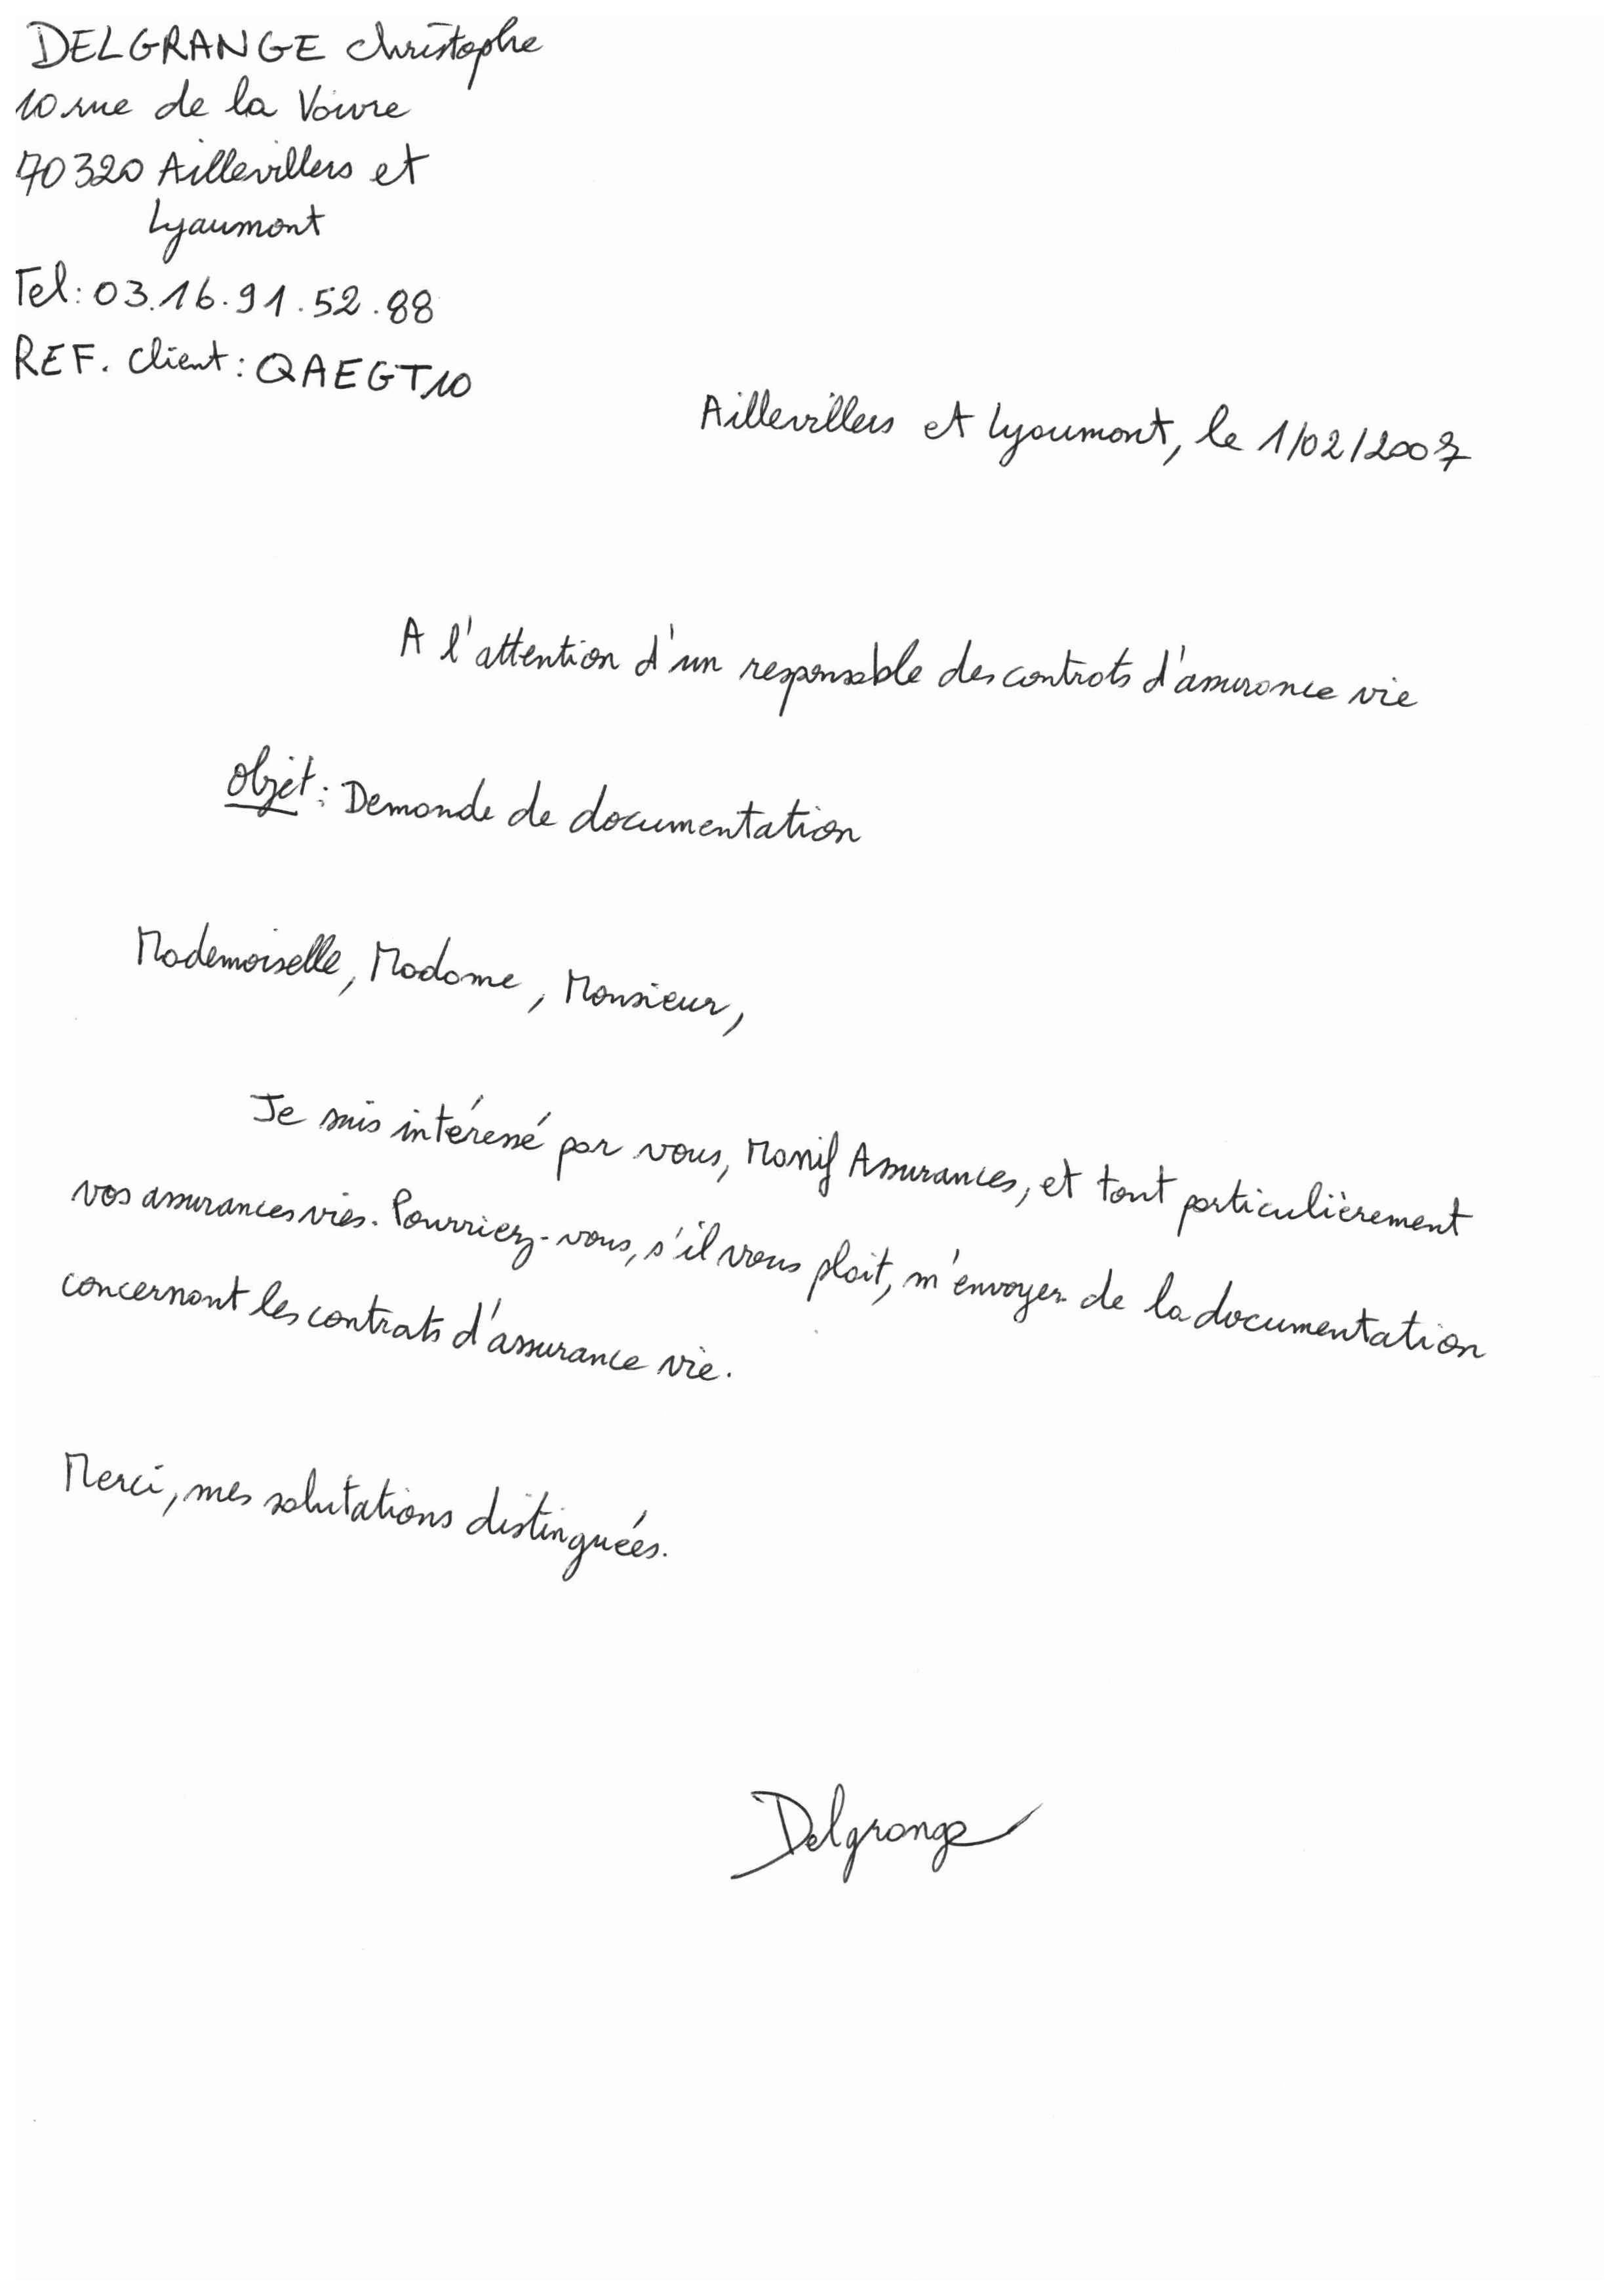 DELGRANGE Christophe
10 rue de la Voivre
70320 Aillevillers et
Lyaumont
Tel: 03.16.91.52.88
REF. Client: QAEGT10
Aillevillers et Lyaumont, le 1/02/2007
A l'attention d'un responsable des contrats d'assurance vie
Objet: Demande de documentation
Mademoiselle, Madame, Monsieur,
Je suis intéressé par vous, Manif Assurances, et tout particulièrement
vos assurances vies. Pourriez-vous, s'il vous plait, m'envoyer de la documentation
concernant les contrats d'assurance vie.
Merci, mes salutations distinguées.
Delgrange